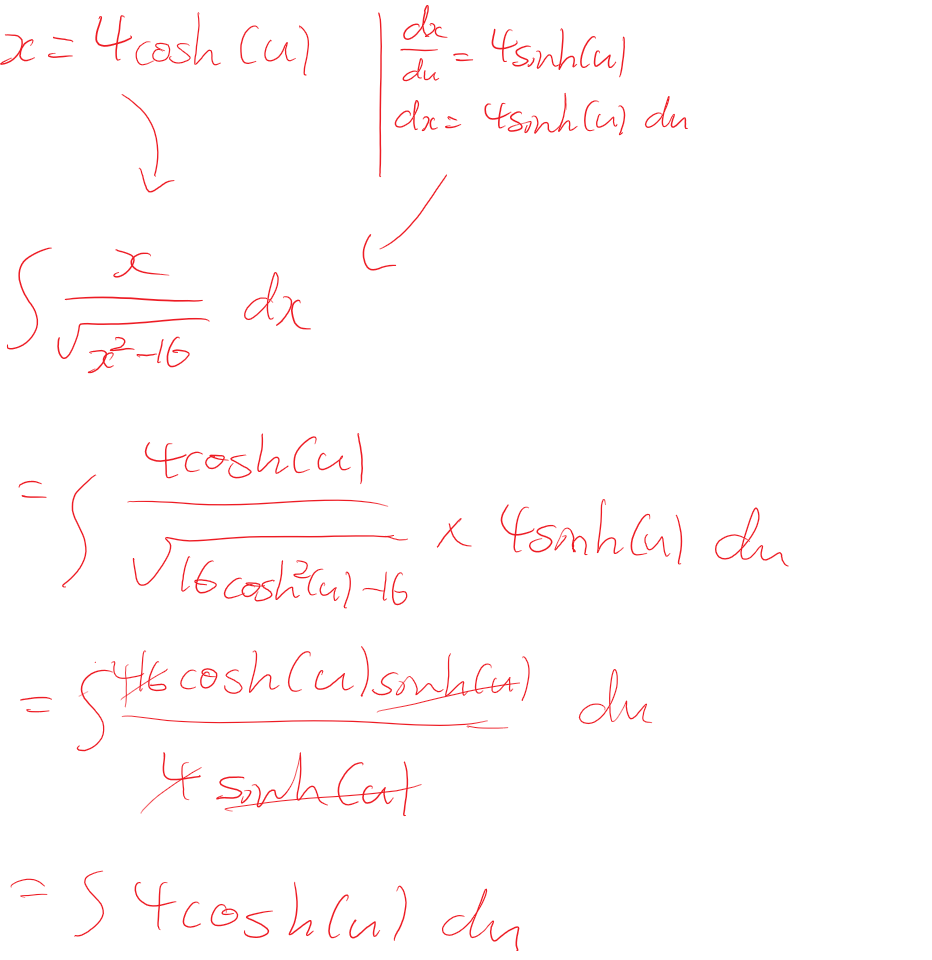 x = 4cosh(u)
dx/du = 4sinh(u)
dx = 4sinh(u) du
∫ x/√(x²-16) dx
= ∫ 4cosh(u)/√(16cosh²(u)-16) × 4sinh(u) du
= ∫ 4 16 cosh(u) sinh(u)/4 sinh(u) du
= ∫ 4cosh(u) du